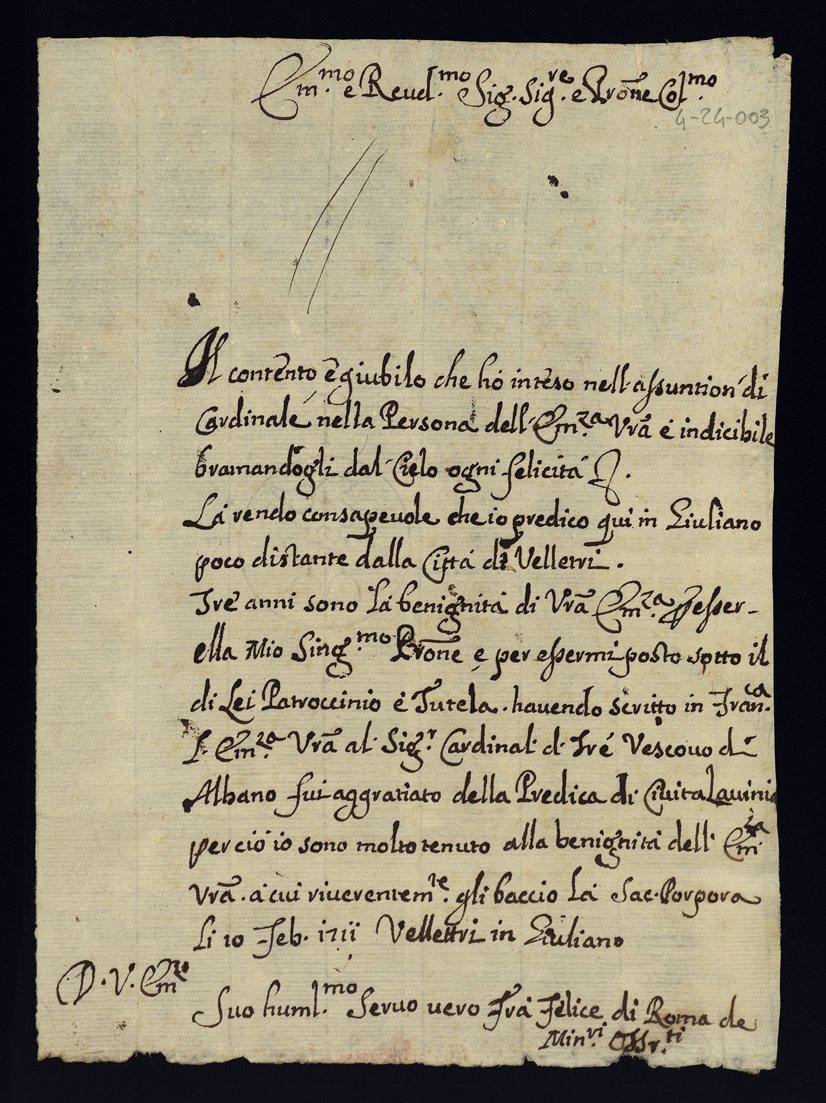 Em.mo e Reud.mo Sig. Sig.re e Prōne Col.mo
4-24-003
Il contento è giubilo che hò inteso nell'assuntion' di
Cardinale, nella Persona dell' Em.za Vrā è indicibile
bramandogli dal Cielo ogni felicitá
Lá rendo consapeuole che io predico qui in Giuliano
poco distante dalla Cittá di Velletri.
Tré anni sono lá benignitá di Vrā Em.za esser-
ella Mio Sing.mo Prōne e per essermi posto sotto il
di Lei Patroccinio é Tutela. hauendo scritto in Fran.ca
l' Em.za Vrā al Sig.r Cardinal d' Tré Vescouo di
Albano fui aggratiato della Predica di Ciuita Lauinia
perció io sono molto tenuto alla benignitá dell' Em.za
Vrā. a cui riuerentem.te gli baccio lá Sac. Porpora
li 10 Feb. 1711 Vellettri in Giuliano
D. V. Em.za
Suo huml.mo Seruo vero Frá Felice di Roma de
Min.ri Oss.ti